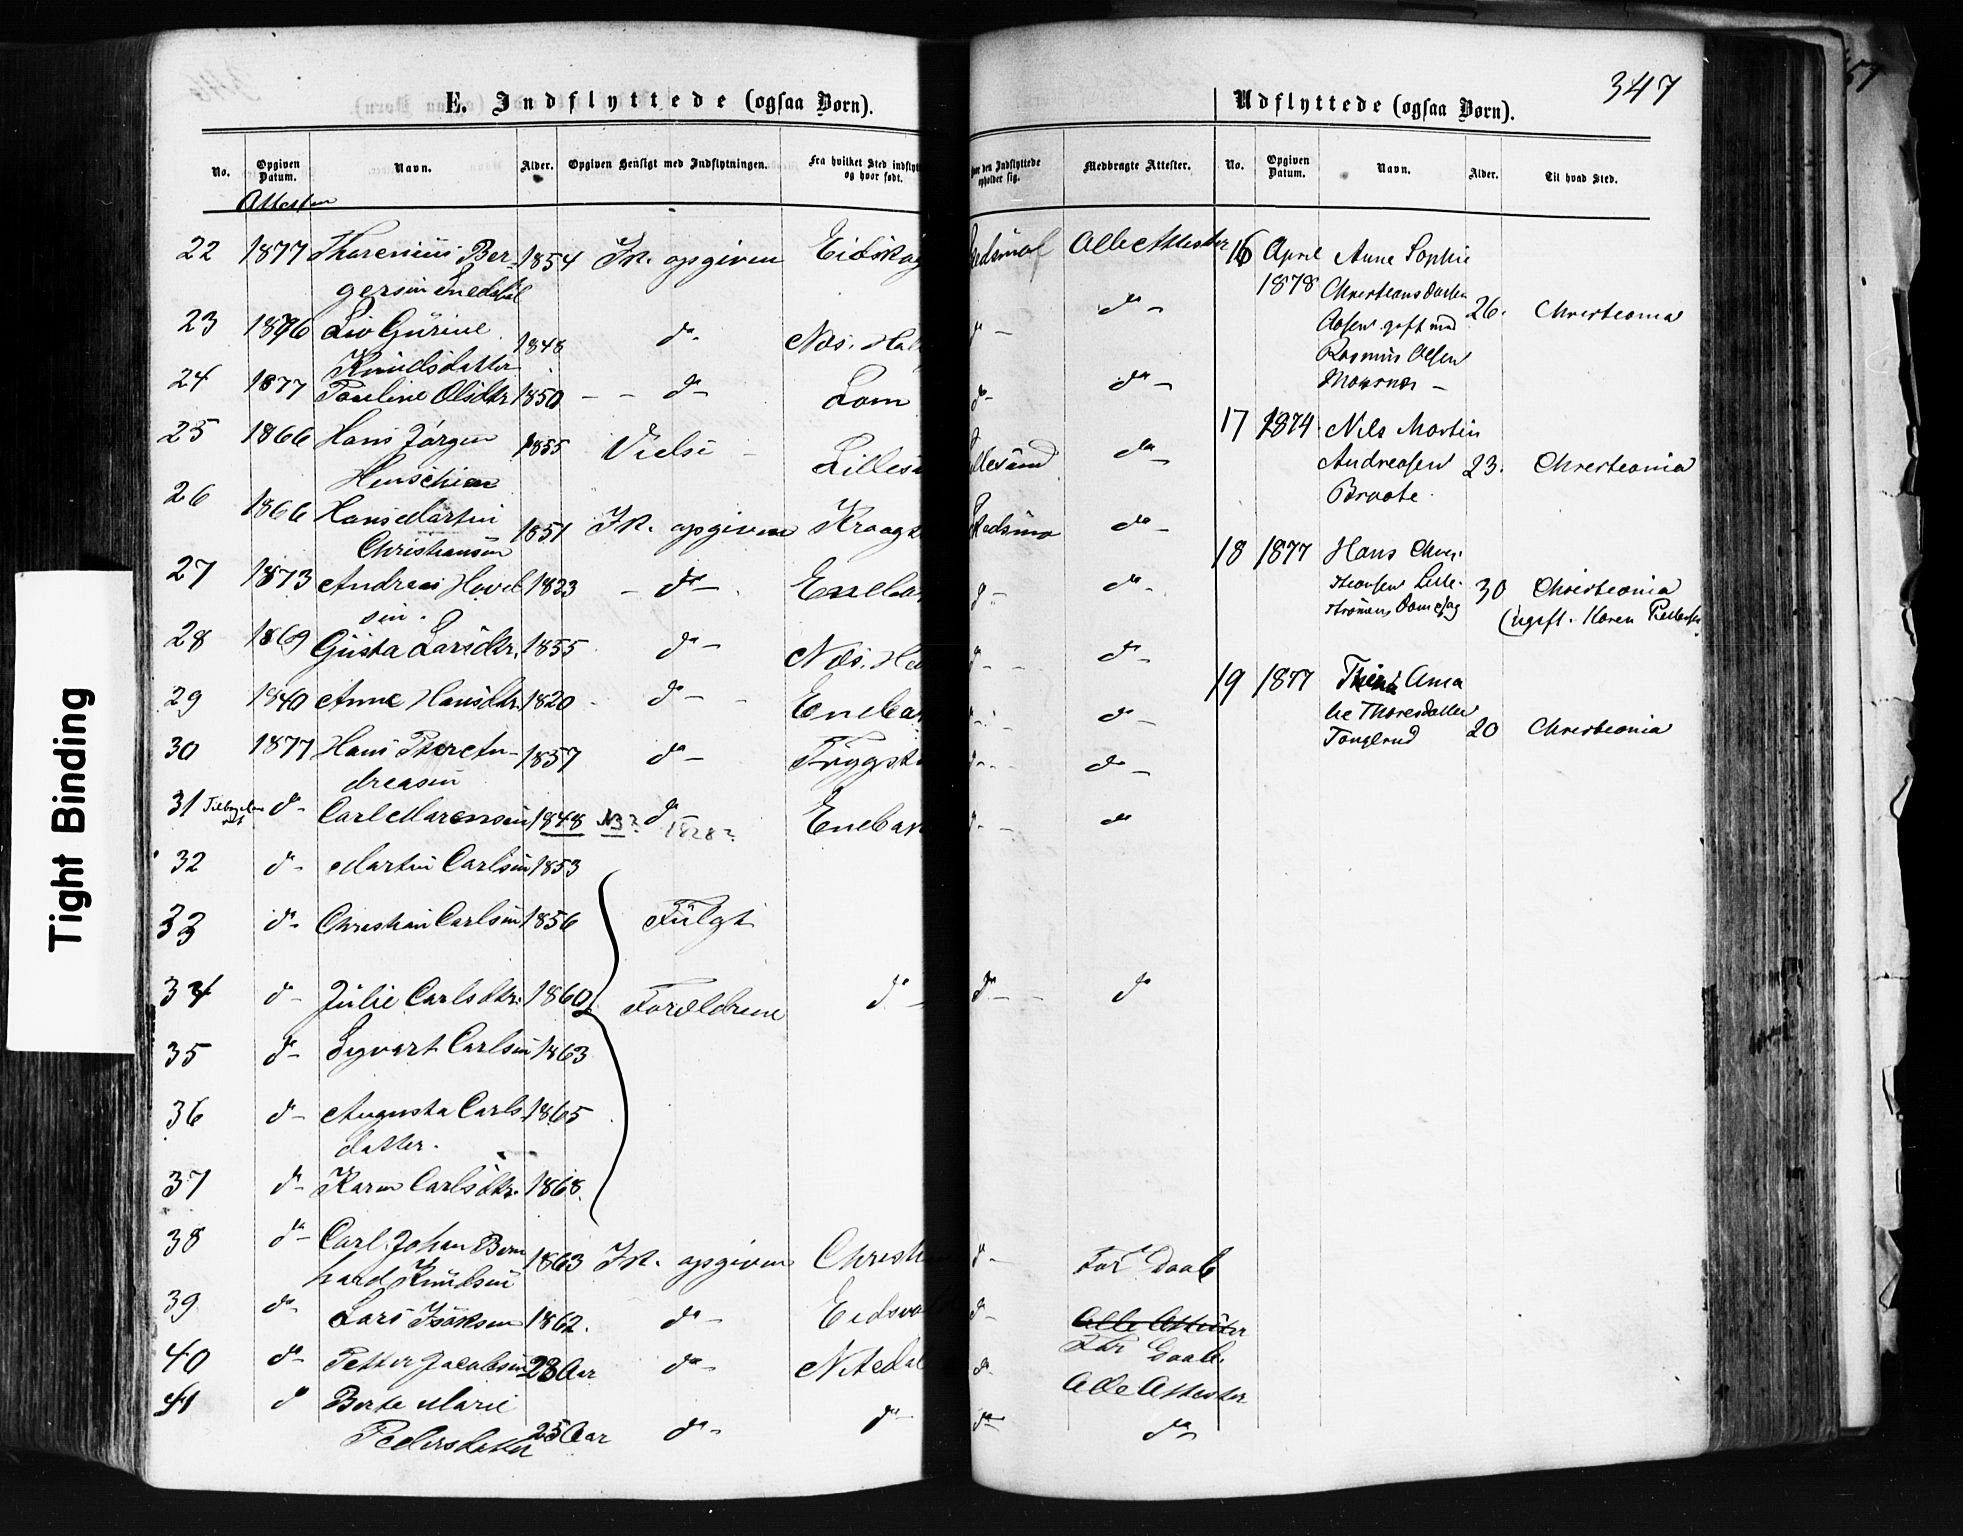 347
E. Indflyttede (ogsaa Børn).
No. Opgiven Datum. Navn. Alder. Opgiven Hensigt med Indflytningen. Fra hvilket Sted indflyt og hvor født.
Attesten
22 1877 Thorenius Ber- 1854 Ik. opgiven Eidskog
gersen
23 1876 Liv Gurine 1848 do Næs. Ha
Knudsdatter
24 1877 Pauline Olsdtr. 1850 - - do - Lom
25 1866 Hans Jørgen 1855 Lilles
26 1866 Hans Martin 1851 Ik. opgiven Kraags
Christiansen
27 1873 Andreas Hovel 1833 - do - Eneba
sen.
28 1869 Gusta Larsdtr. 1855 do - Næs. He
29 1840 Anne Hansdtr. 1820 do - Eneba
30 1877 Hans Petter An- 1857 do - Tryggsta
dreasen
31 do - Carl Marensen 1848 N3? do 1828? Enebak
32 do - Martin Carlsen 1853
33 do - Christian Carlsen 1856 Fulgt
34 do - Julie Carlsdtr. 1860 Forældrene do -
35 do - Syvart Carlsen 1863
36 do - Augusta Carls 1865
datter.
37 do - Karen Carlsdtr. 1868.
38 do - Carl Johan Bern 1863 Ik. opgiven Christi
hard Knudsen
39 do - Lars Isaksen 1862. do - Eidsvo
40 do - Petter Jacobsen 28 Aar do - Nitedal
41 do Berte Marie
Pedersdatter 25 Aar do - do -
hvor den Indflyttede opholder sig. Medbragte Attester.
Skedsmo Alle Attester
do - do -
do - do -
llesund do -
Skedsmo do -
do - do -
do - do -
do - do -
do - do -
do - do
do - do
do - For Daab
do - Alle Attester
For Daab
do - Alle Attester
do - do -
Udflyttede (ogsaa Børn).
No. Opgiven Datum. Navn. Alder. Til hvad Sted.
16 April Anne Sophie
1878 Christiansdatter 26. Christiania
Aasen gift med
Rasmus Olsen
17 1874 Nils Martin
Andreasen 23. Christiania
Braate.
18 1877 Hans Chri-
stiansen Lille- 30 Christiania
strømens Dampsag (ugift. Karen Peders
19 1877 Thina Ama
lie Thoresdatter 20 Christiania
Tonglrud
Tight Binding